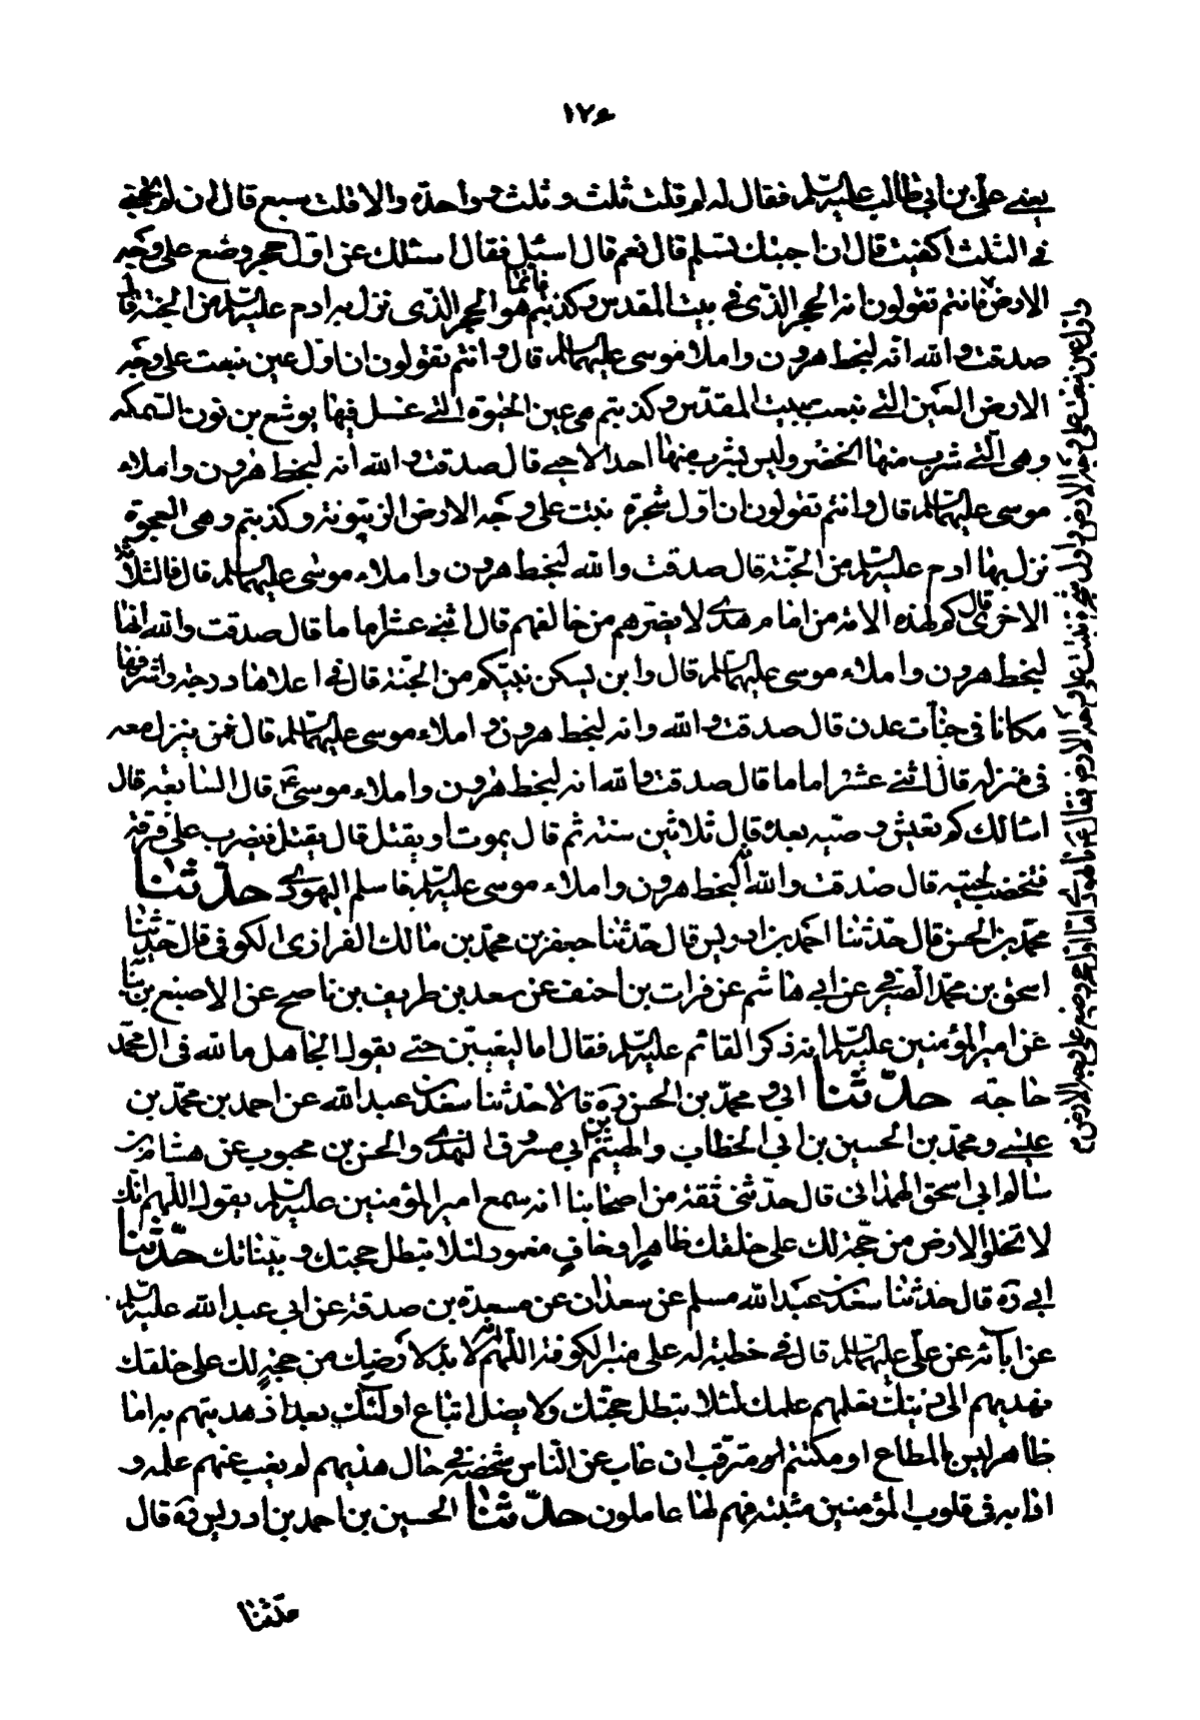 ١٢٤
يعنى على بن ابى طالب عليه السلم فقال له لم قلت ثلث وثلث وواحدة والا قلت سبع قال ان لم تجبنى
فى الثلث اكتفيت قال ان اجبتك تسلم قال نعم قال اسئل فقال اسئلك عن اول حجر وضع على وجه
الارض فانتم تقولون انه الحجر الذى فى بيت المقدس وكذبتم هو الحجر الذى نزل به ادم عليه السلم من الجنة قال
صدقت والله انه لبخط هرون واملاء موسى عليهما السلم قال وانتم تقولون ان اول عين نبعت على وجه
الارض العين التى نبعت ببيت المقدس وكذبتم هى عين الحيوة التى غسل فيها يوشع بن نون السمكه
وهى التى شرب منها الخضر وليس يشرب منها احد الا حيى قال صدقت والله انه لبخط هرون واملاء
موسى عليهما السلم قال وانتم تقولون ان اول شجرة نبتت على وجه الارض الزيتونة وكذبتم وهى العجوة
نزل بها ادم عليه السلم من الجنة قال صدقت والله لبخط هرون واملاء موسى عليهما السلم قال فالثلاثة
الاخرى قال كم لهذه الامة من امام هدى لا يضرهم من خالفهم قال اثنى عشر اماما قال صدقت والله انها
لبخط هرون واملاء موسى عليهما السلم قال واين يسكن نبيكم من الجنة قال فى اعلاها درجة واشرفها
مكانا فى جنات عدن قال صدقت والله وانه لبخط هرون واملاء موسى عليهما السلم قال فمن ينزل معه
فى منزله قال اثنى عشر اماما قال صدقت والله انه لبخط هرون واملاء موسى ع قال السابعة قال
اسالك كم يعيش وصيه بعده قال ثلاثين سنة ثم قال يموت او يقتل قال يقتل فيضرب على قرنه
فتخضب لحيته قال صدقت والله انه لبخط هرون واملاء موسى عليه السلم فاسلم اليهودى حدثنا
محمد بن الحسن قال حدثنا احمد بن ادريس قال حدثنا جعفر بن محمد بن مالك الفزارى الكوفى قال حدثنا
اسحق بن محمد الصيرفى عن ابى هاشم عن فرات بن احنف عن سعد بن طريف بن ناصح عن الاصبغ بن نباتة
عن امير المؤمنين عليه السلم انه ذكر القائم عليه السلم فقال اما ليغيبن حتى يقول الجاهل ما لله فى ال محمد
حاجة حدثنا ابى ومحمد بن الحسن ره قالا حدثنا سعد بن عبد الله عن احمد بن محمد بن
عيسى ومحمد بن الحسين بن ابى الخطاب والهيثم بن ابى مسروق النهدى والحسن بن محبوب عن هشام بن
سالم ابى اسحق الهمدانى قال حدثنى ثقة من اصحابنا انه سمع امير المؤمنين عليه السلم يقول اللهم انك
لا تخلو الارض من حجة لك على خلقك ظاهر او خاف مغمور لئلا تبطل حجتك وبيناتك حدثنا
ابى ره قال حدثنا سعد بن عبد الله مسلم عن سعدان عن مسعدة بن صدقة عن ابى عبد الله عليه السلم
عن ابآئه عن على عليهم السلم قال فى خطبة له على منبر الكوفة اللهم انه لا بد لارضك من حجة لك على خلقك
يهديهم الى دينك يعلمهم علمك لئلا تبطل حجتك ولا يضل اتباع اوليآئك بعد اذ هديتهم به اما
ظاهر ليس بالمطاع او مكتتم او مترقب ان غاب عن الناس شخصه فى حال هديهم لم يغب عنهم علمه و
ادابه فى قلوب المؤمنين مثبتة فهم لها عاملون حدثنا الحسين بن احمد بن ادريس ره قال
حدثنا
واول عين نبعت على وجه الارض واول شجرة نبتت على وجه الارض فقال ع يا يهودى اما اول حجر وضع على وجه الارض م